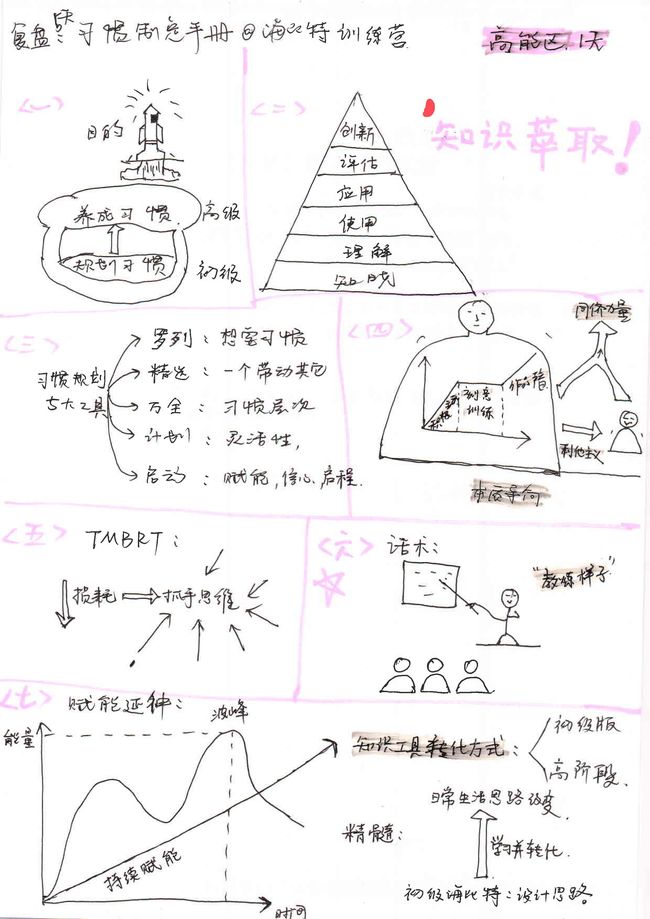 复盘 习惯制定手册@海比特训练营
高能区.1天
<一>
目的
养成习惯
高级
规划习惯
初级
<二>
创新
评估
应用
使用
理解
知晓
知识萃取!
<三>
习惯规划
5大工具
罗列:想要习惯
精选:一个带动其它
万全:习惯层次
计划:灵活性,
启动:赋能,信心,启程.
<四>
刻意
训练
同侪力量
利他主义
本质导向
<五>
TMBRT:
损耗
抓手思维
<六>
话术:
"教练样子"
<七>
赋能延种:
能量
波峰
持续赋能
时间
知识工具转化方式:
初级版
高阶段.
日常生活思路改变
精髓:
学习并转化.
初级海比特:设计思路.